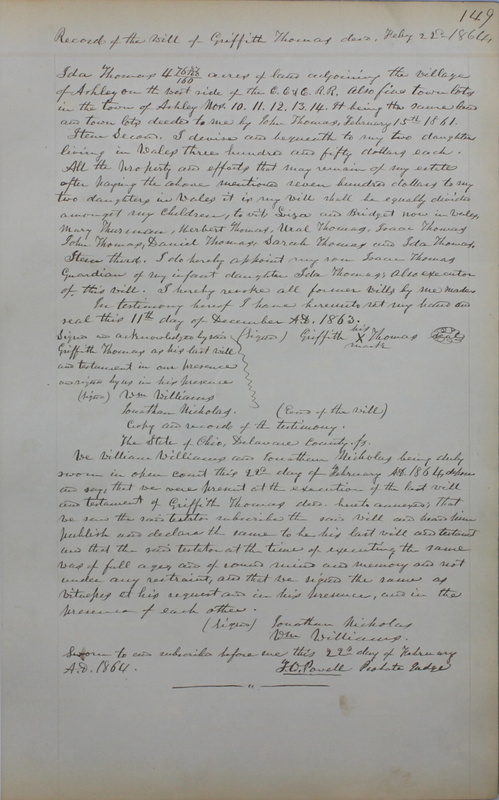 149
Record of the Will of Griffith Thomas decd. Feby 22nd 1864
Ida Thomas 4 76/100 acres of land adjoining the village
of Ashley on the west side of the C. C & C. R. R. Also five town lots
in the town of Ashley Nos. 10. 11. 12. 13. 14. It being the same land
and town lots deeded to me by John Thomas, February 15th 1861.
Item Second. I devise and bequeath to my two daughters
living in Wales three hundred and fifty dollars each.
All the property and effects that may remain of my estate
after paying the above mentioned seven hundred dollars to my
two daughters in Wales it is my will shall be equally divided
amongst my Children, to wit Liza and Bridget now in Wales,
Mary Thurman, Herbert Thomas, Neal Thomas, Isaac Thomas
John Thomas, Daniel Thomas, Sarah Thomas and Ida Thomas.
Item third. I do hereby appoint my son Isaac Thomas
Guardian of my infant daughter Ida Thomas; also executor
of this will. I hereby revoke all former wills by me made.
In testimony hereof I have hereunto set my hand and
seal this 11th day of December A.D. 1863.
Signed and acknowledged by said (Signed) Griffith his X mark Thomas Seal
Griffith Thomas as his last will
and testament in our presence
and signed by us in his presence
(Signed) Wm Williams
Jonathan Nicholas. (End of the Will)
Copy and record of the testimony.
The State of Ohio, Delaware County ss.
We William Williams and Jonathan Nicholas being duly
sworn in open court this 22d day of February A.D. 1864, depose
and say, that we were present at the execution of the last will
and testament of Griffith Thomas decd. hereto annexed; that
we saw the said testator subscribe the said will and heard him
publish and declare the same to be his last will and testament
and that the said testator at the time of executing the same
was of full age, and of sound mind and memory and not
under any restraint, and that we signed the same as
witnesses at his request and in his presence, and in the
presence of each other.
(Signed) Jonathan Nicholas
Wm Williams.
Sworn to and subscribed before me this 22d day of February
A.D. 1864. Probate Judge